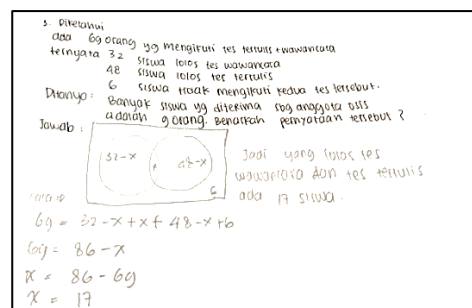 3. Diketahui
ada 69 orang yg mengikuti tes tertulis + wawancara
ternyata 32 siswa lolos tes wawancara
48 siswa lolos tes tertulis
6 siswa tidak mengikuti kedua tes tersebut.
Ditanya : Banyak siswa yg diterima sbg anggota osis
adalah 9 orang. Benarkah pernyataan tersebut ?
Jawab :
32-x x 48-x
6
Jadi yang lolos tes
wawancara dan tes tertulis
ada 17 siswa.
69 = 32-x+x+48-x+6
69 = 86-x
x = 86-69
x = 17